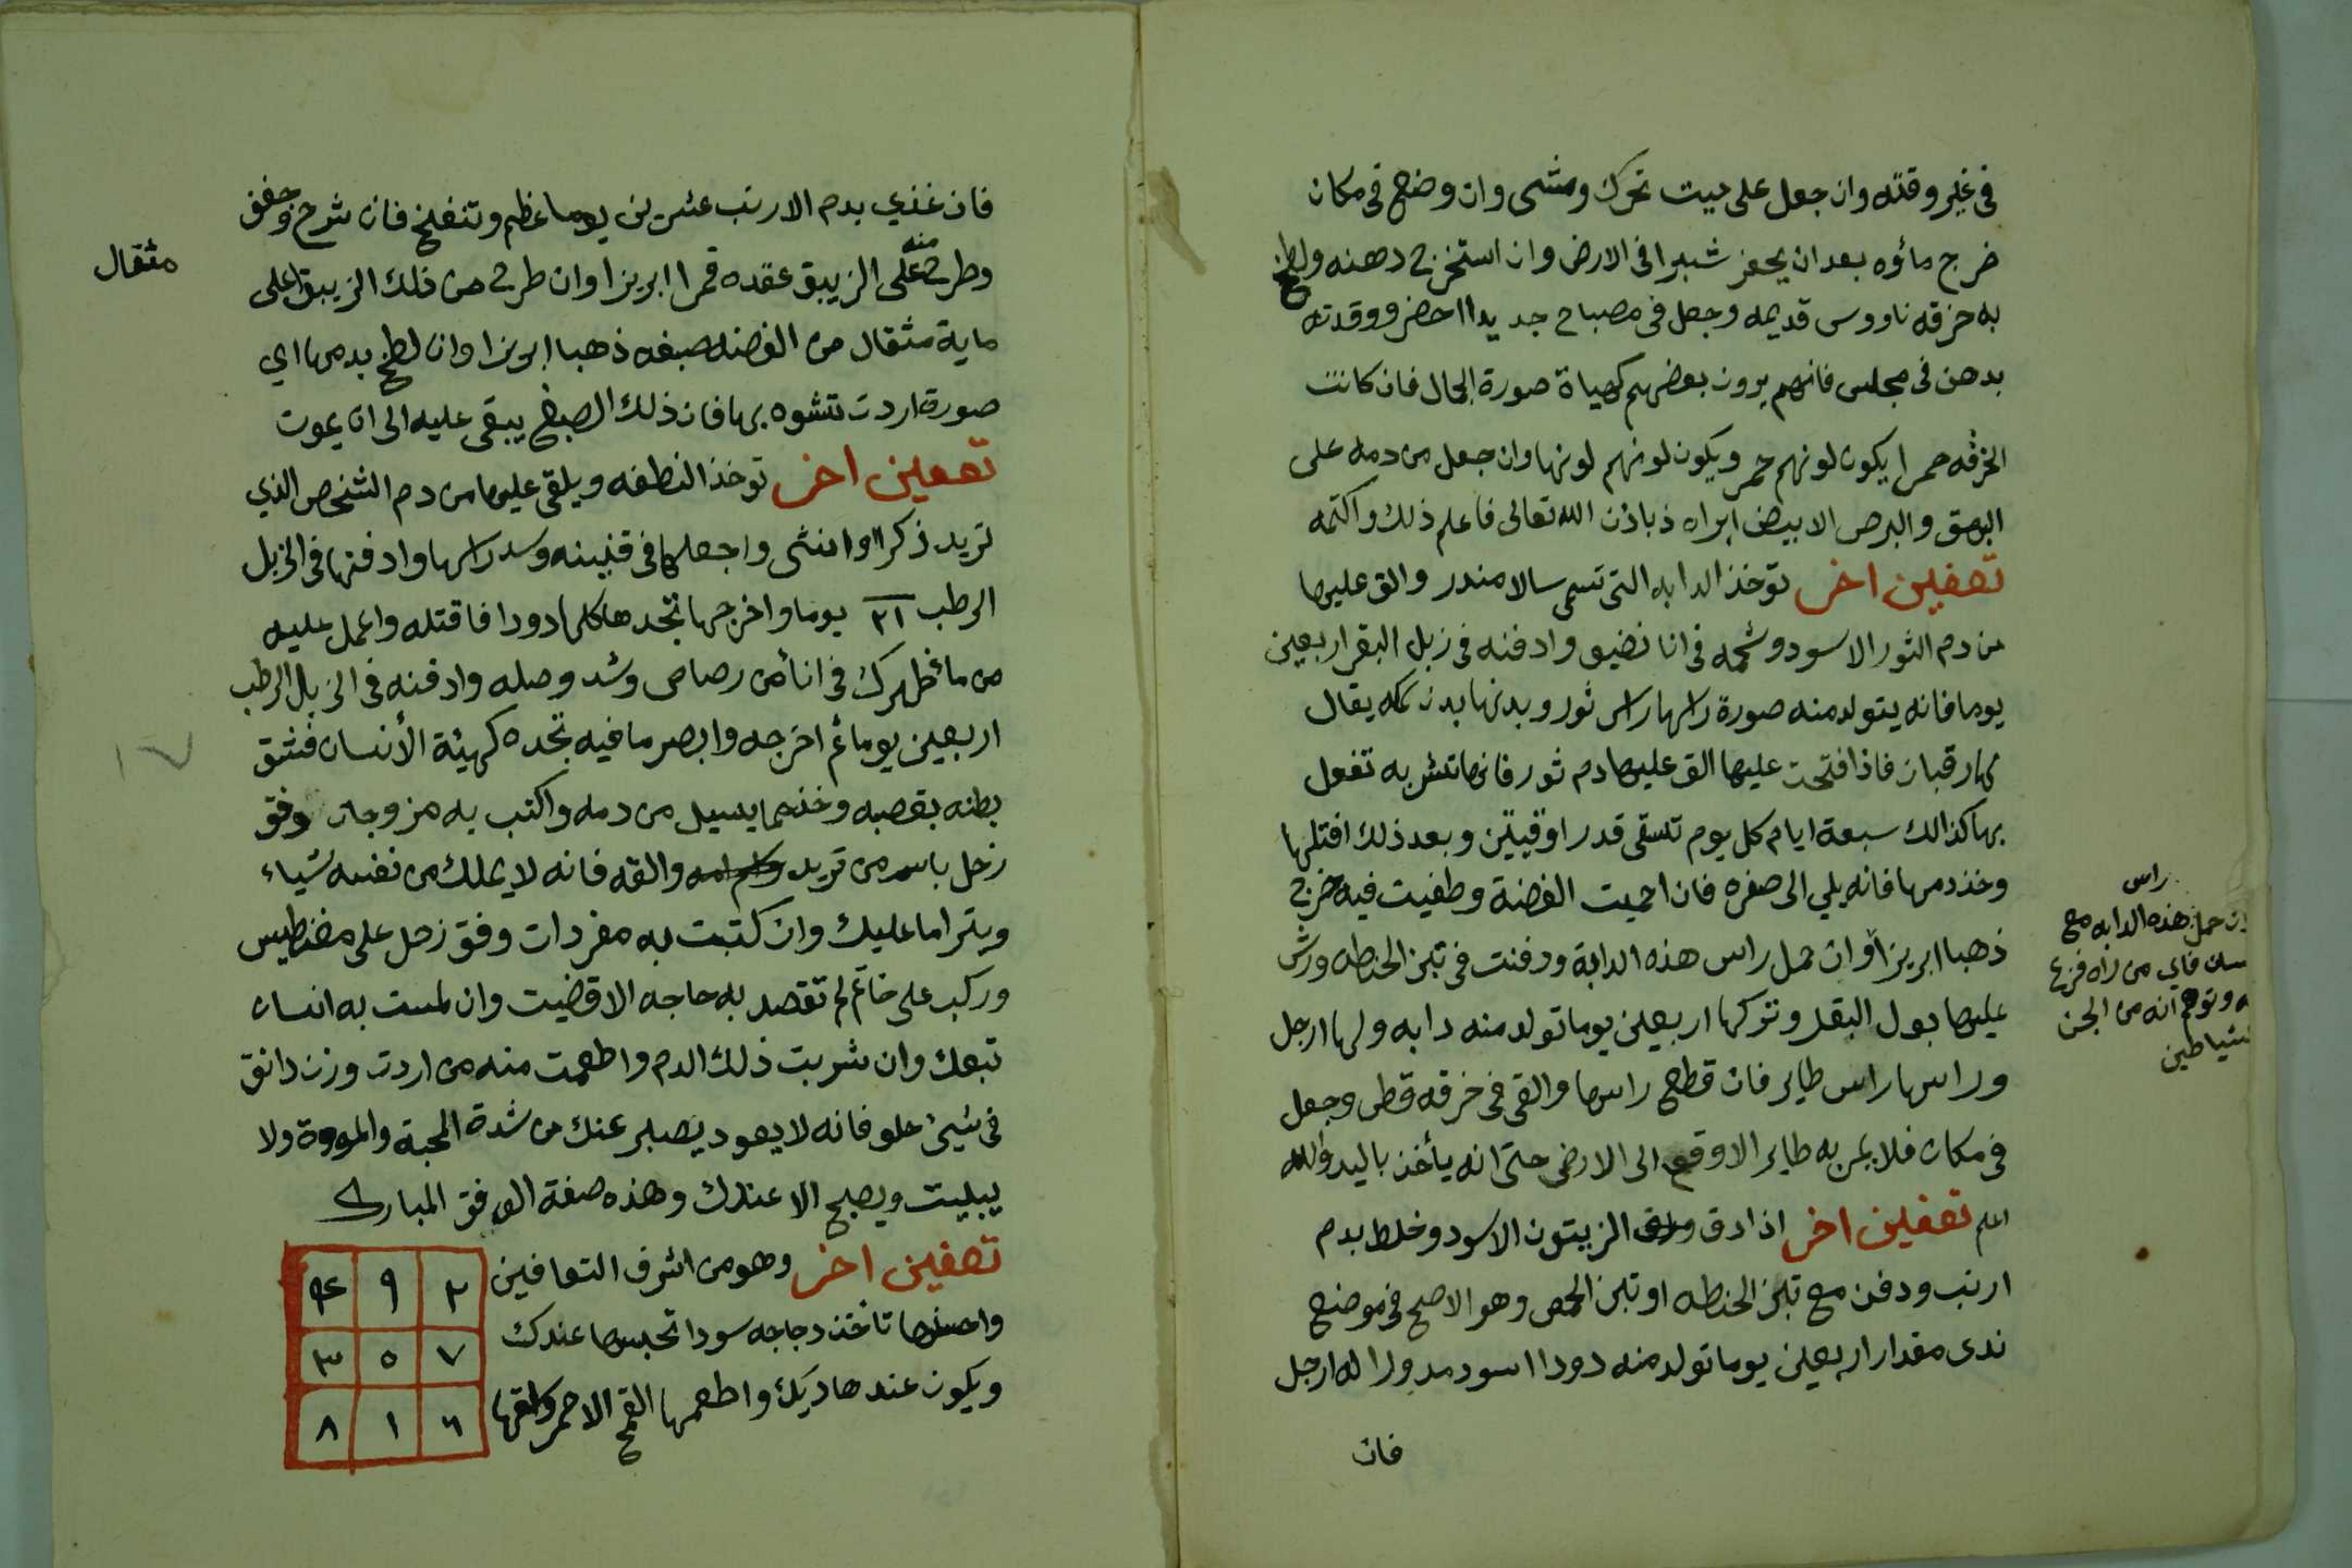 فى غير وقته وان جعل على ميت تحرك ومشى وان وضع فى مكان
خرج ماؤه بعد ان يحفر شبرا فى الارض وان استخرج دهنه ولطخ
به خرقه ناووس قديمه وجعل فى مصباح جديد اخضر ووقدته
بدهن فى مجلس فانهم يرون بعضهم كهياة صورة الحال فان كانت
الخرقه حمرا يكون لونهم حمر ويكون لونهم لونها وان جعل من دمه على
البهق والبرص الابيض ابراه ذ باذن الله تعالى فاعلم ذلك واكتمه
تعفين اخر توخذ الدابه التى تسمى سالامندر والق عليها
من دم الثور الاسود وشحمه فى انا نضيو وادفنه فى زبل البقر اربعين
يوما فانه يتولد منه صورة راسها راس ثور وبدنها بدن سمكه يقال
لها رقبان فاذا فتحت عليها الق عليها دم ثور فانها تشربه تفعل
بها كذالك سبعة ايام كل يوم تسقى قدر اوقيتين وبعد ذلك اقتلها
وخذ دمها فانه يلي الى صفره فان احميت الفضة وطفيت فيه خرج
ذهبا ابريزا وان حمل راس هذه الدابة ودفنت فى تبن الحنطه ورش
عليها بول البقر وتركها اربعين يوما تولد منه دابه ولها ارجل
وراسها راس طاير فان قطع راسها والقى فى خرقه قطن وجعل
فى مكان فلا يمر به طاير الا وقع الى الارض حتى انه يأخذ باليد والله
اعلم تعفين اخر اذا دق ورق الزيتون الاسود وخلط بدم
ارنب ودفن مع تبن الحنطه او تبن الحمص وهو الاصح فى موضع
ندى مقدار اربعين يوما تولد منه دودا اسود مدورا له ارجل
فان
راس
ان حمل هذه الدابه مع
سان فاي من راه فزع
ه وتوهم انه من الجن
لشياطين
فان غذي بدم الارنب عشرين يوما عظم وتنفخ فان شرح وجفف
وطرح منه على الزيبق عقده قمرا ابريزا وان طرح من ذلك الزيبق على
مثقال
ماية مثقال من الفضه صبغه ذهبا ابريزا وان لطخ بدمها اي
صورة اردت تشوه بها فان ذلك الصبغ يبقى عليه الى ان يموت
تعفين اخر توخذ النطفه ويلقى عليها من دم الشخص الذي
تريد ذكرا او انثى واجعلها فى قنينه وسد راسها وادفنها فى الزبل
الرطب ٢١ يوما واخرجها تجدها كلها دودا فاقتله واعمل عليه
من ما ظهرك فى انأ من رصاص وشد وصله وادفنه فى الزبل الرطب
اربعين يوما ثم اخرجه وابصر ما فيه تجده كهيئة الأنسان فشق
بطنه بقصبه وخذ ما يسيل من دمه واكتب به مزوجات وفق
زحل باسم من تريد والقه فانه لا يملك من نفسه شياء
ويتراما عليك وان كتبت به مفردات وفق زحل على مغنطيس
وركب على خاتم لم تقصد به حاجه الا قضيت وان لمست به انسان
تبعك وان شربت ذلك الدم واطعمت منه من اردت وزن دانق
فى شيئ حلو فانه لا يعود يصبر عنك من شدة المحبة والمودة ولا
يبيت ويصبح الا عندك وهذه صفة الوفق المبارك
تعفين اخر وهو من اشرف التعافين
واحسنها تاخذ دجاجه سودا تحبسها عندك
ويكون عندها ديك واطعمها القمح الاحمر واسقها
٢ ٩ ٤
٧ ٥ ٣
٦ ١ ٨
١٧